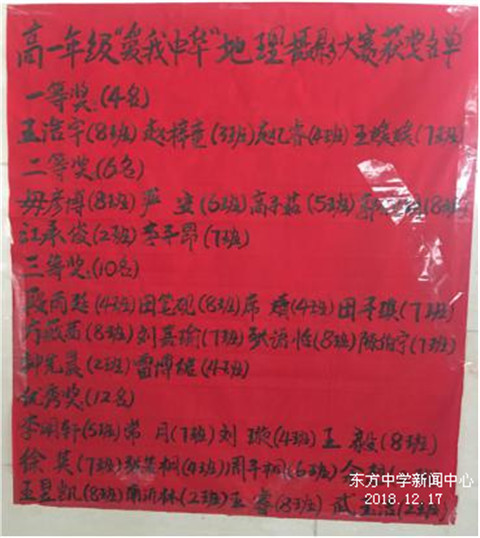 高一年级“爱我中华”地理摄影大赛获奖名单
一等奖:(4名)
王浩宇(8班) 赵梓童(3班) 赵 睿(4班) 王媛媛(7班)
二等奖(6名)
毋彦博(8班) 严 安(6班) 高子茹(5班) (8班)
江承俊(2班) 李平昂(7班)
三等奖:(10名)
段雨 (4班) 田笔砚(8班) 席 (4班) 田子琪(7班)
(8班) 刘嘉瑜(7班) 张语恬(8班) 陈怡宁(7班)
钟先晨(2班) 雷博继(4班)
优秀奖:(12名)
李明轩(5班) 常 月(7班) 刘 璇(4班) 王 毅(8班)
徐 英(7班) 桐(4班) 周平桐(6班)
王昱凯(8班) 南沂林(2班) 王 睿(8班) 武 (2班)
东方中学新闻中心
2018.12.17